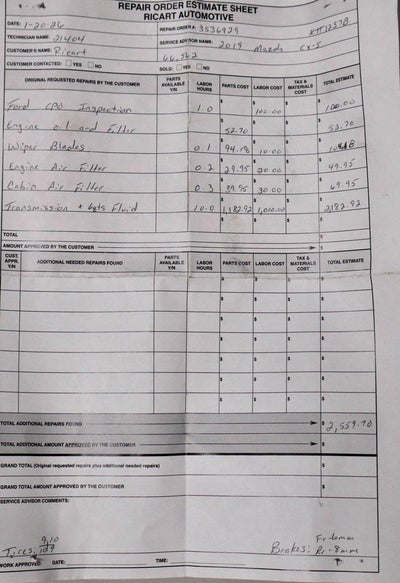 REPAIR ORDER ESTIMATE SHEET
RICART AUTOMOTIVE
DATE: 1-20-26 REPAIR ORDER #: 3536929 KTT1257B
TECHNICIAN NAME: 21404 SERVICE ADVISOR NAME: 2019 Mazda CX-5
CUSTOMER'S NAME: Ricart 66,562
CUSTOMER CONTACTED: YES NO SOLD: YES NO
ORIGINAL REQUESTED REPAIRS BY THE CUSTOMER PARTS AVAILABLE Y/N LABOR HOURS PARTS COST LABOR COST TAX & MATERIALS COST TOTAL ESTIMATE
Ford CPO Inspection 1.0 $ $ 100.00 $ $ 100.00
Engine oil and Filter $ 52.70 $ $ $ 52.70
Wiper Blades 0.1 $ 94.18 $ 10.00 $ $ 104.18
Engine Air Filter 0.2 $ 29.95 $ 20.00 $ $ 49.95
Cabin Air Filter 0.3 $ 39.95 $ 30.00 $ $ 69.95
Transmission + Fluid 10.0 $ 1,182.92 $ 1,000.00 $ $ 2,182.92
TOTAL $
AMOUNT APPROVED BY THE CUSTOMER $
CUST. APPR. Y/N ADDITIONAL NEEDED REPAIRS FOUND PARTS AVAILABLE Y/N LABOR HOURS PARTS COST LABOR COST TAX & MATERIALS COST TOTAL ESTIMATE
$ $ $ $
$ $ $ $
$ $ $ $
$ $ $ $
$ $ $ $
$ $ $ $
$ $ $ $
TOTAL ADDITIONAL REPAIRS FOUND $ 2,559.70
TOTAL ADDITIONAL AMOUNT APPROVED BY THE CUSTOMER $
GRAND TOTAL (Original requested repairs plus additional needed repairs) $
GRAND TOTAL AMOUNT APPROVED BY THE CUSTOMER $
SERVICE ADVISOR COMMENTS:
9,10 Fr-6mm
Tires: Brakes: Rr-8mm
WORK APPROVED: DATE: TIME: